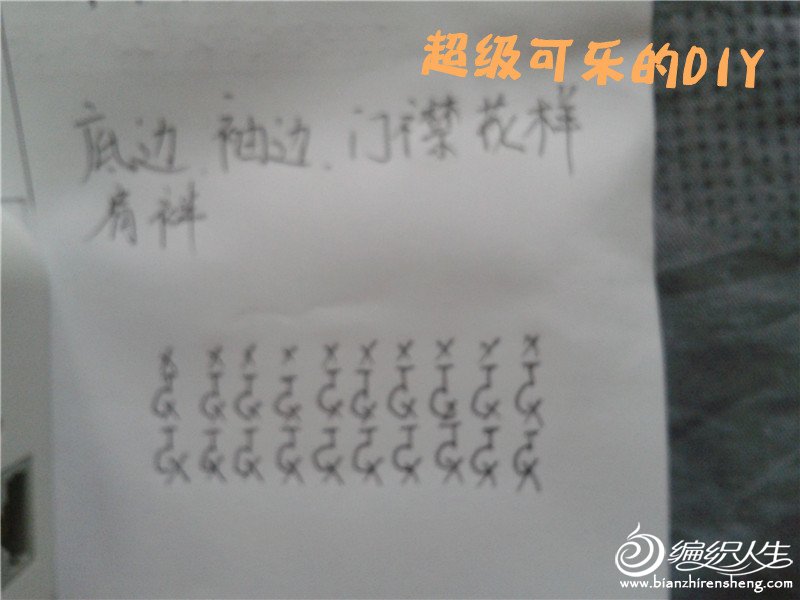 超级可乐的DIY
底边、袖边、门襟花样
肩袢
编织人生
www.bianzhirensheng.com